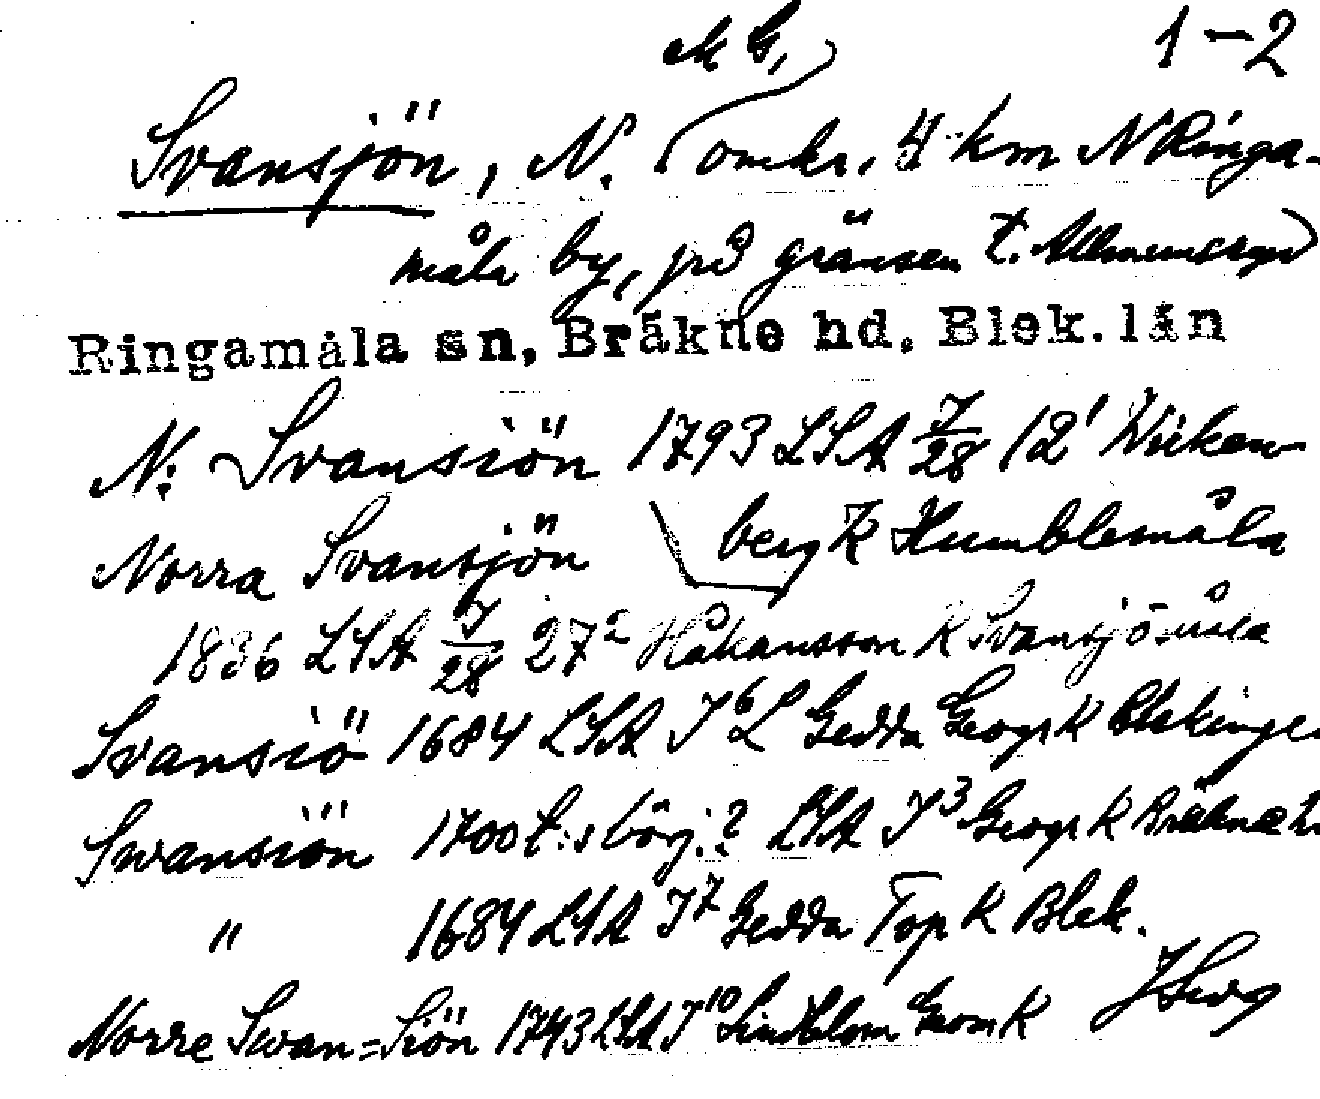 MG, 1-2
Svansjön, N. (omkr. 4 km N Ringa-
måla by, på gränsen t. Almundsryd)
Ringamåla sn, Bräkne hd. Blek. län
N: Svansiön 1793 LSA J/28 12' Wirken-
berg K Humblemåla
Norra Svansjön
1836 LSA J/28 27² Håkansson K Svansjömåla
Svansiö 1684 LSA J 6 L Gedda Geogr K Blekinge
Swansiön 1700 t:s börj.? LSA J³ Geogr K Bräkne h
" 1684 LSA J⁷ Gedda Top K Blek.
Norre Swan=Siön 1743 LSA J¹⁰ Lindblom Geom K